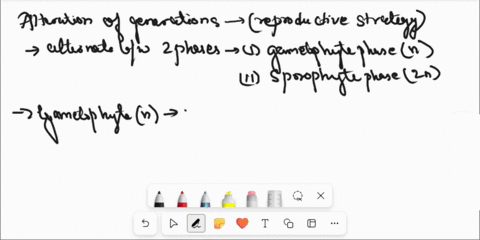 Alteration of generations → (reproductive strategy)
→ alternate b/w 2 phases → (i) gametophyte phase (n)
(ii) Sporophyte phase (2n)
→ Gametophyte (n) →